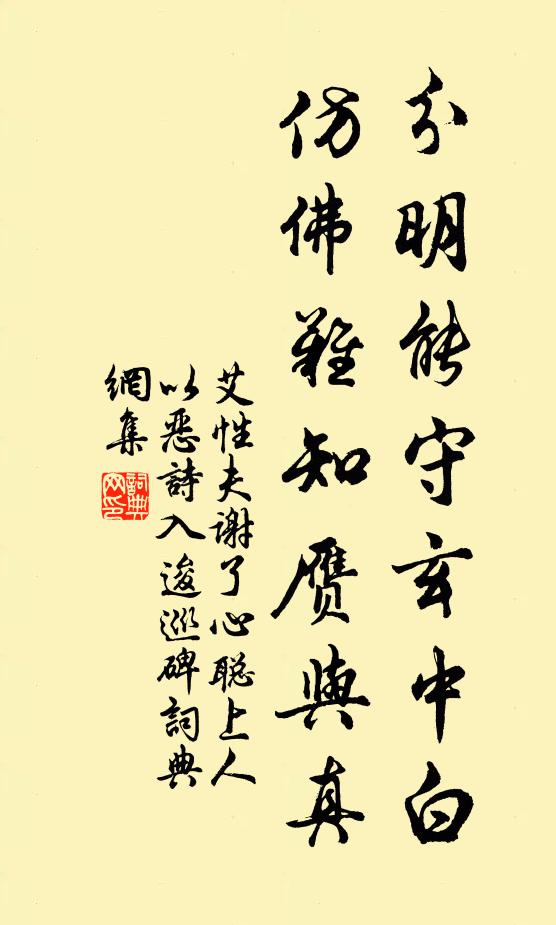 分明能守玄中白
仿佛難知贋與真
艾性夫谢了心聪上人
以恶詩入逡巡碑詞典
網集
詞典網印